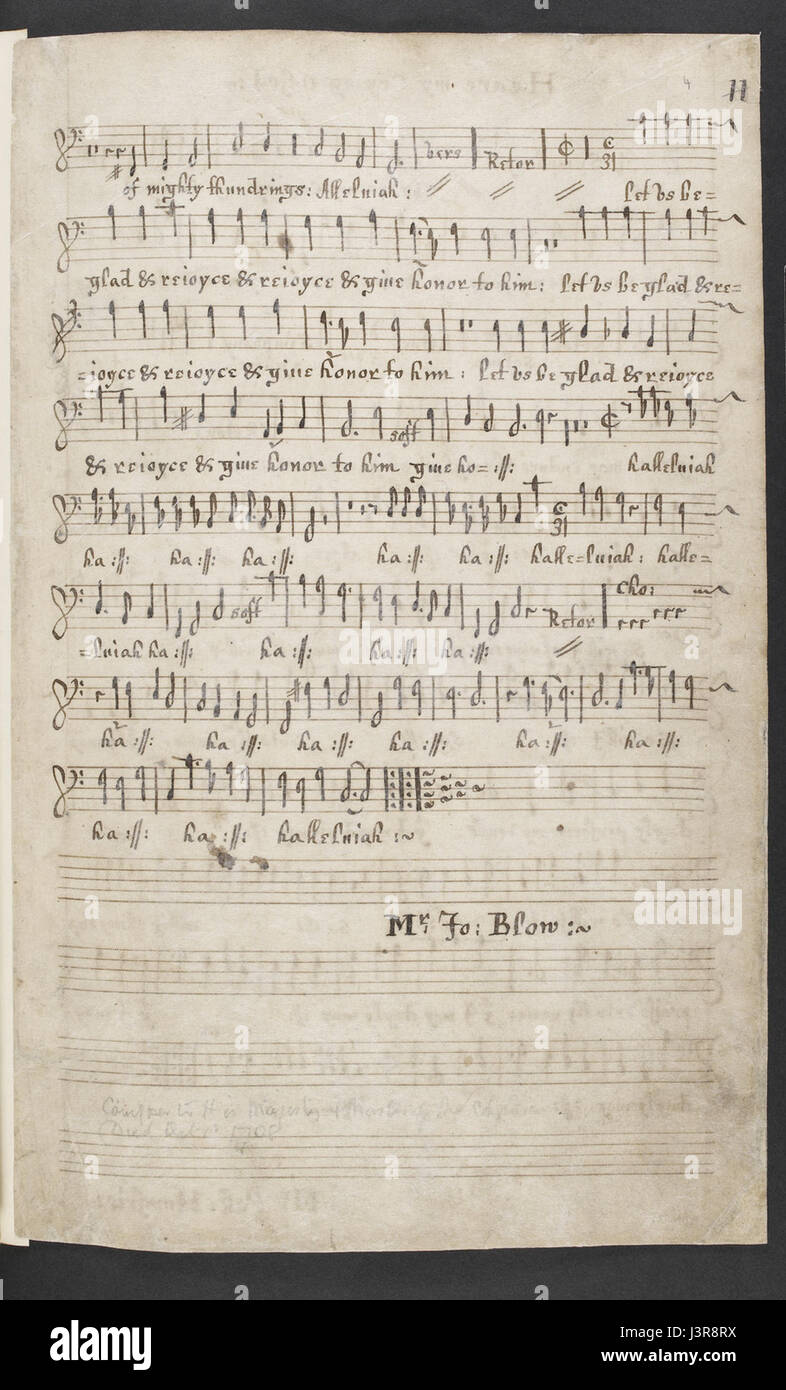 11
vers Retor
of mighty thundrings: Alleluiah: // // // Let Vs be=
glad & reioyce & reioyce & giue honor to him: Let Vs be glad & re=
=ioyce & reioyce & giue honor to him: Let Vs be glad & reioyce
soft
& reioyce & giue honor to him giue ho=://: halleluiah
ha://: ha://: ha://: ha://: ha://: halle=luiah: halle=
soft Retor cho:
=luiah ha://: ha://: ha://: ha://: //
ha://: ha://: ha://: ha://: ha://: ha://:
ha://: ha://: halleluiah:~
Mr. Jo: Blow:~
alamy
Image ID: J3R8RX
www.alamy.com